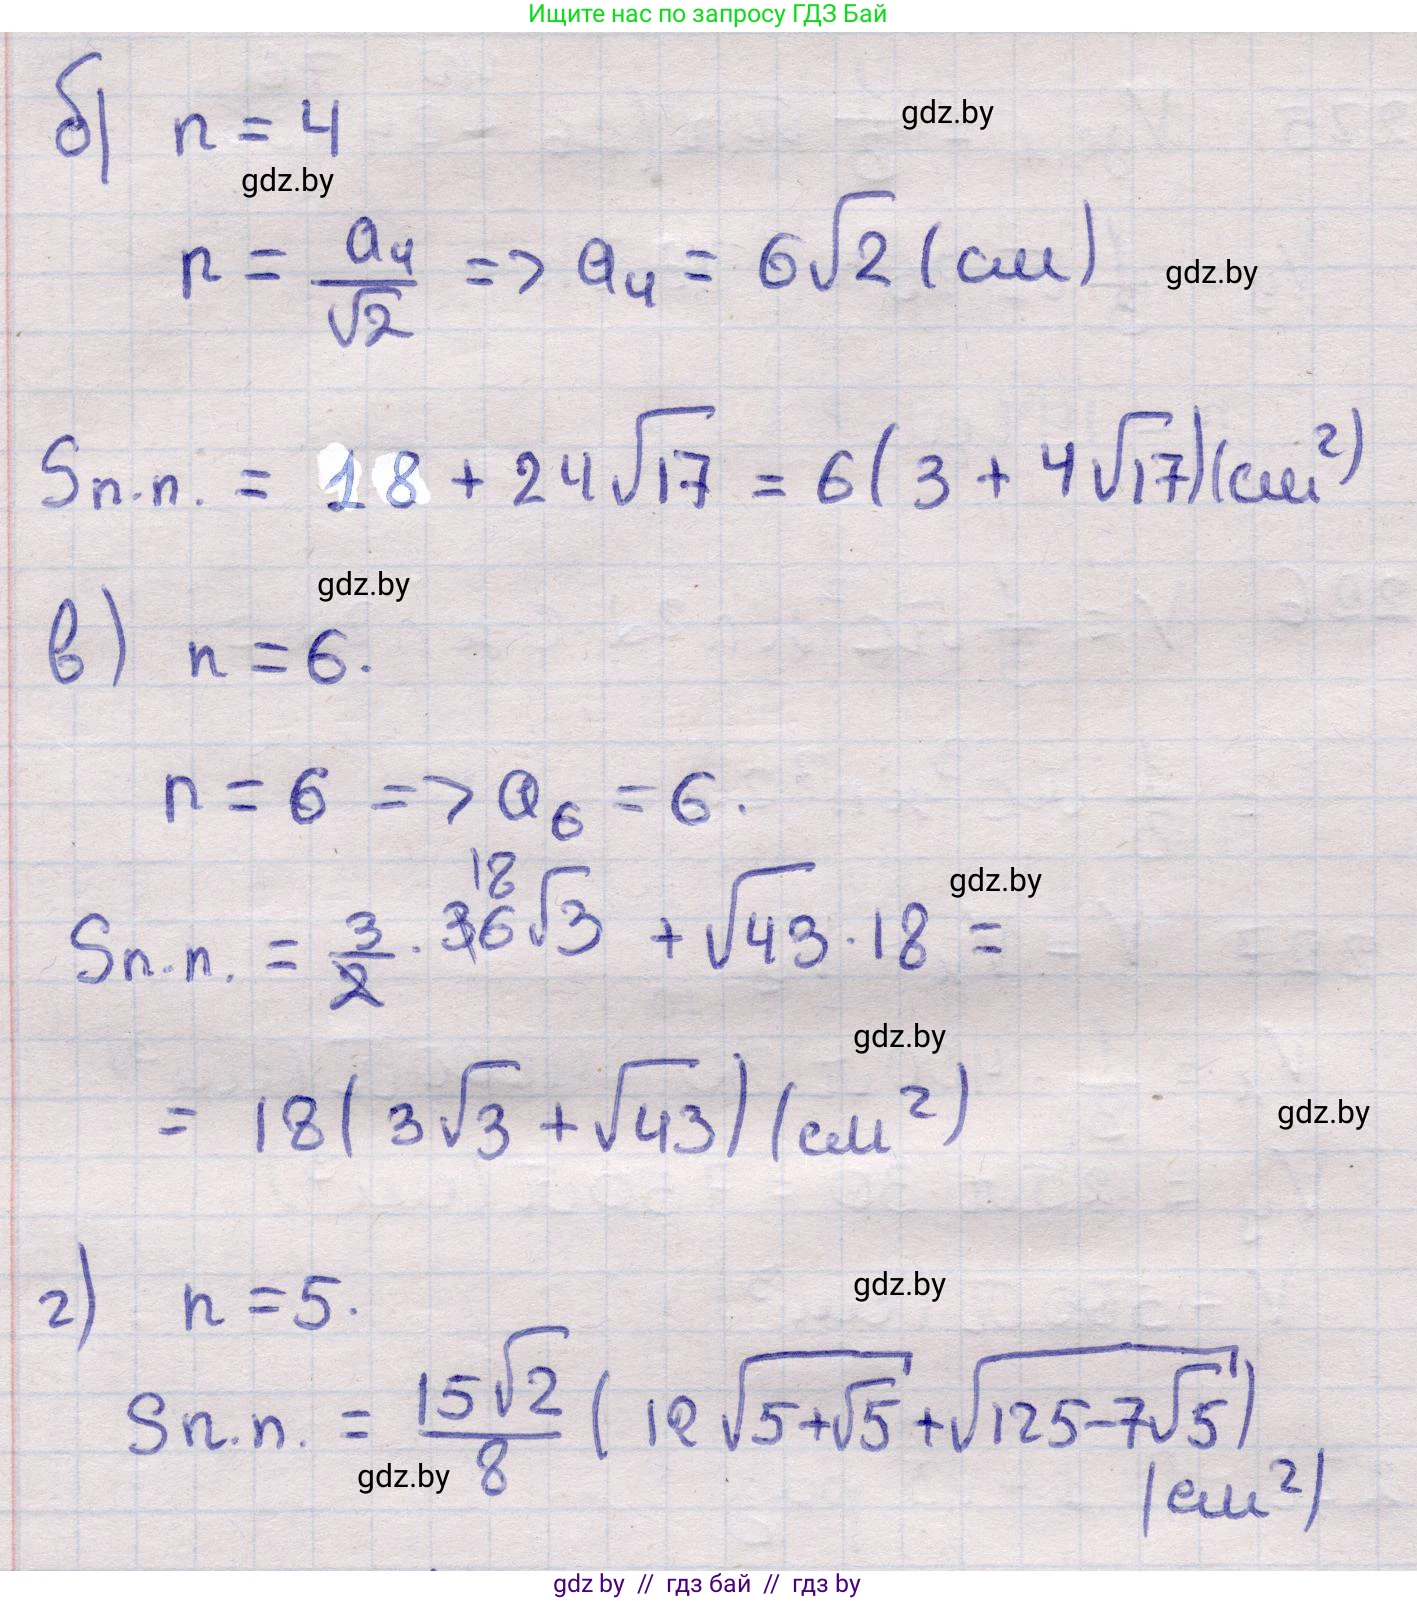 Ищите нас по запросу ГДЗ Бай
б) n = 4
gdz.by
gdz.by
r = a₄/√2 => a₄ = 6√2 (см)
gdz.by
Sп.п. = 18 + 24√17 = 6(3 + 4√17)(см²)
gdz.by
в) n = 6.
r = 6 => a₆ = 6.
18
Sп.п. = 3/2 · 36√3 + √43 · 18 =
gdz.by
gdz.by
= 18(3√3 + √43)(см²)
gdz.by
г) n = 5.
gdz.by
Sп.п. = 15√2/8 (12√(5+√5) + √(125-7√5))
gdz.by
(см²)
gdz by // гдз бай // гдз by